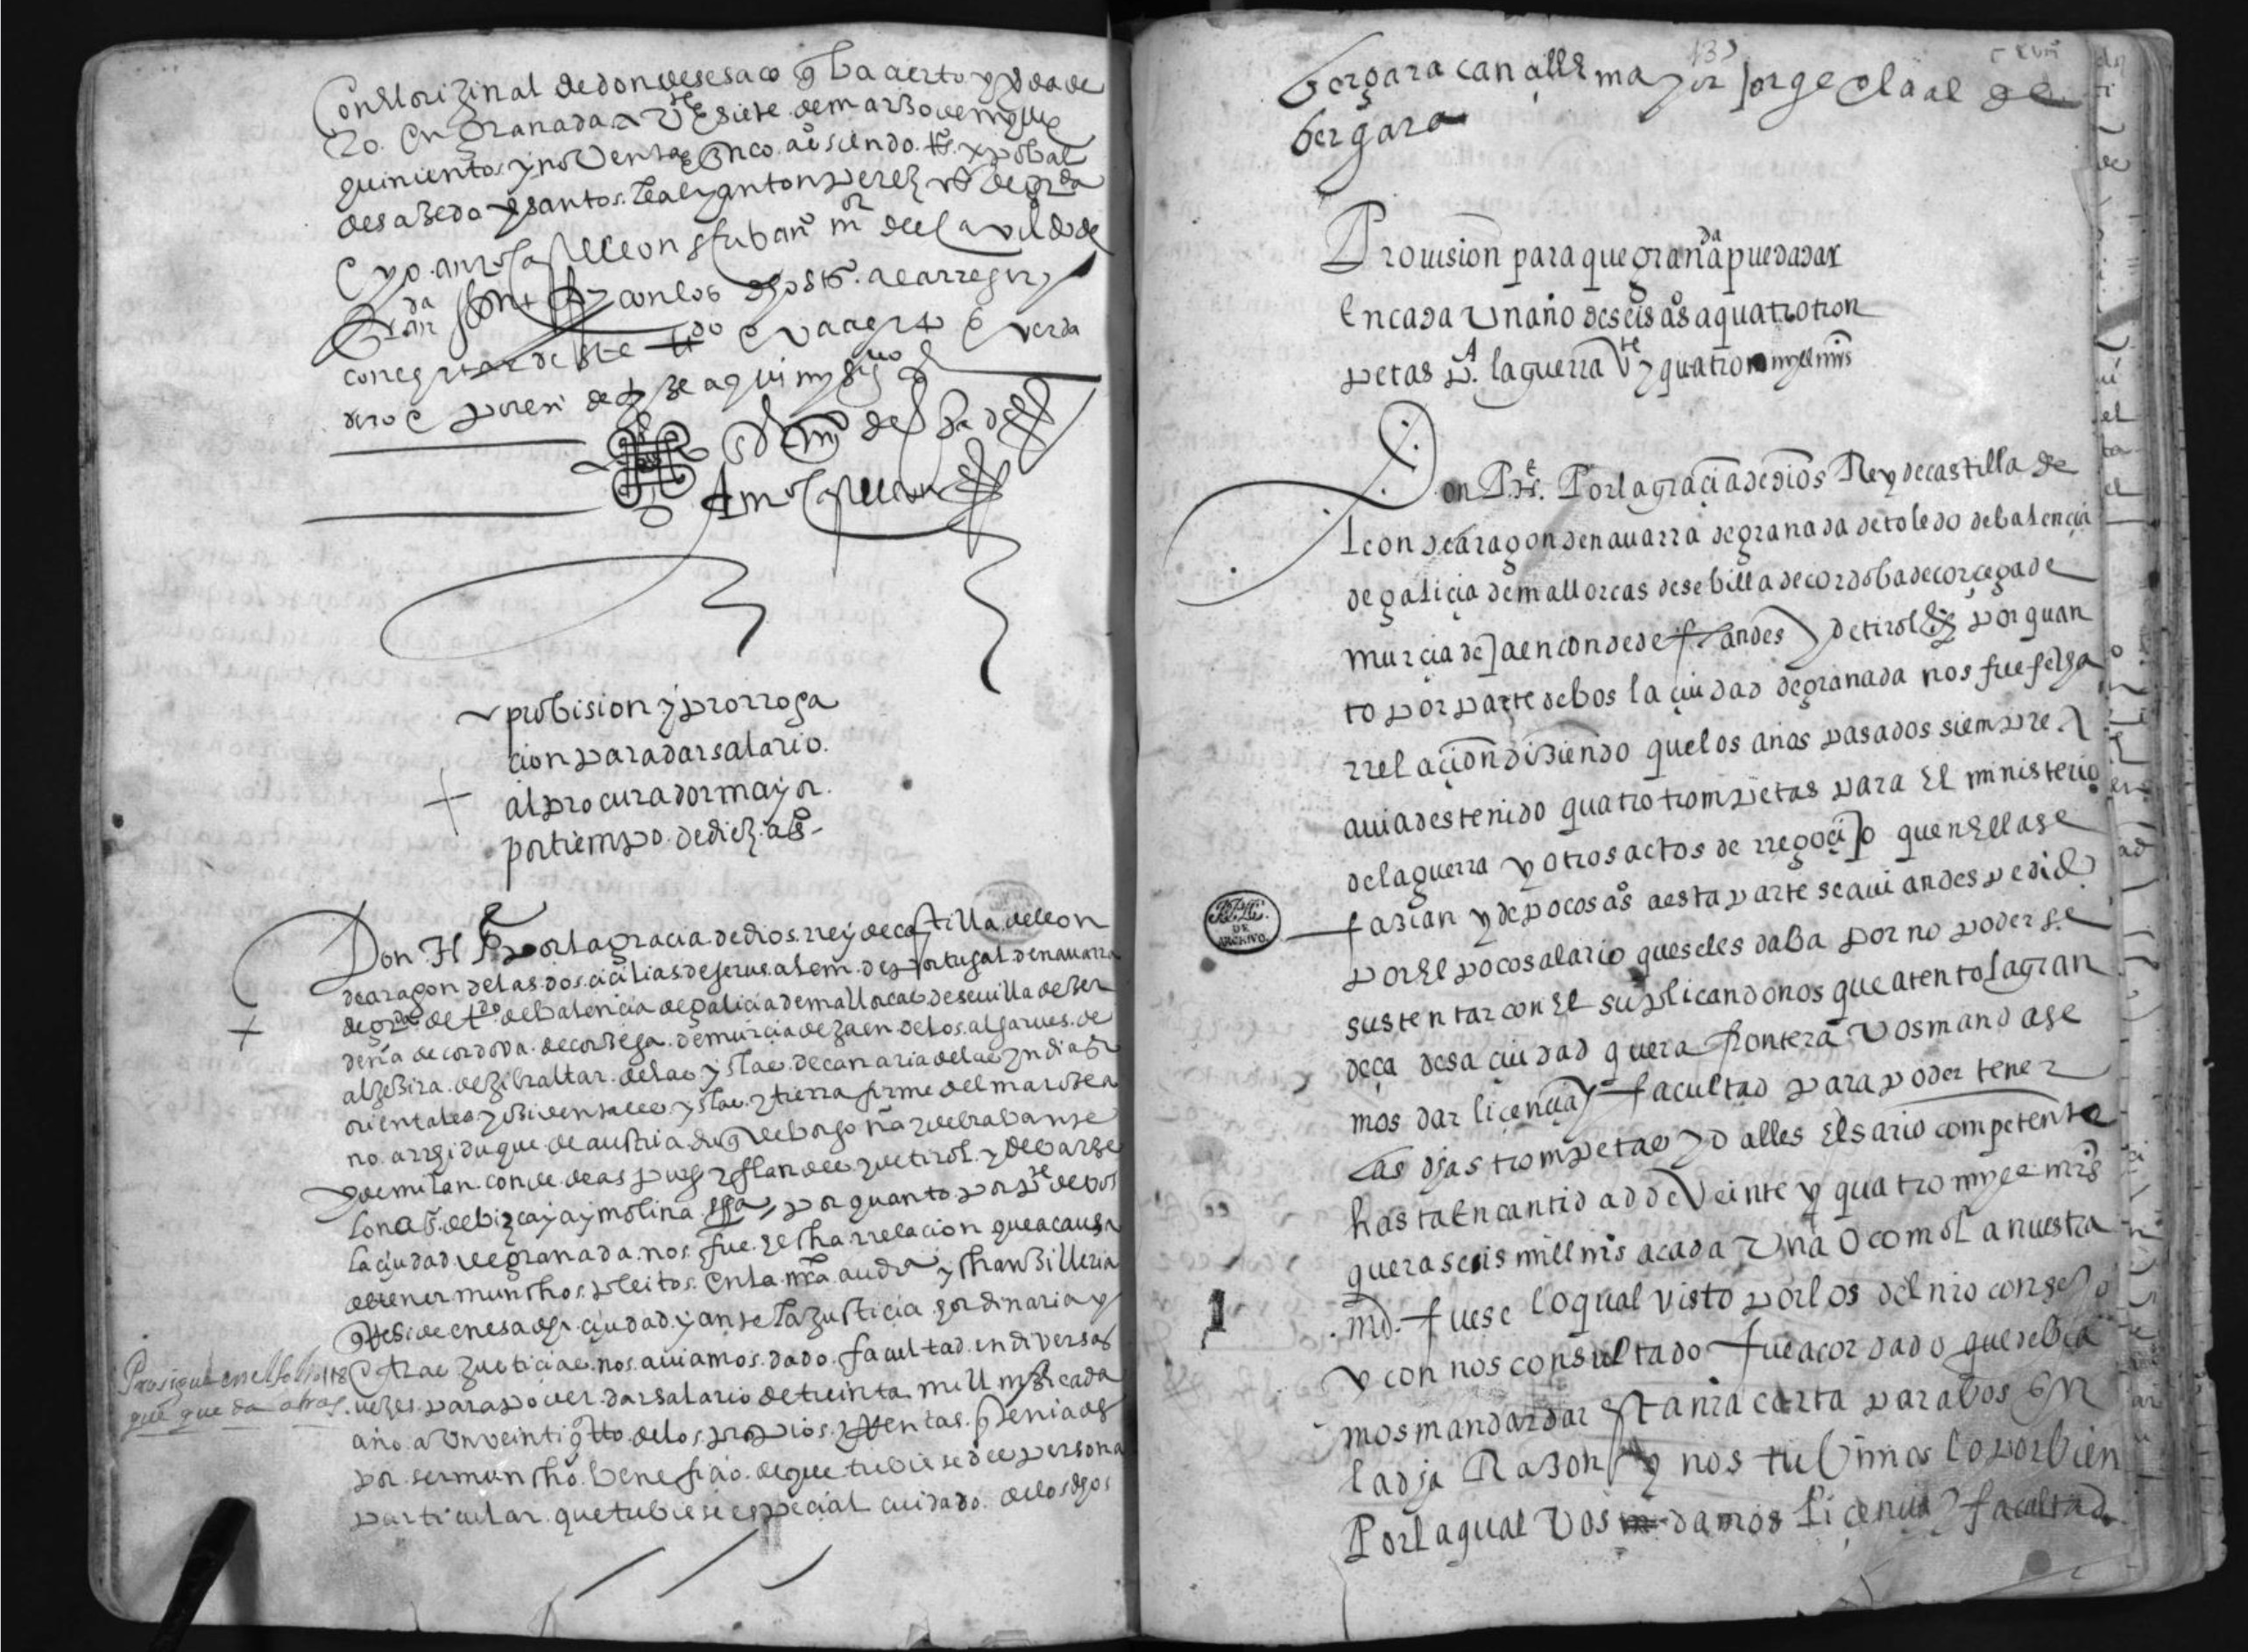 Con el orixinal de donde se saco q ba cierto y berdade
ro. En granada a Ve e siete de março de mill e
quinientos y noventa e cinco as siendo ts xpobal
de sabedo y santos leal y anton perez vs de grda
E yo amr castillo escriuano mor del cavildo de
Granda con los dhos ts a la corregir y
corregi este tdo e va cierto e verda
dero e por en de fize aqui my sygno
en tso de berdad
Amro castillo
probision y prorroga
cion para dar salario.
al procurador mayor.
por tiempo de diez as
Don H Pe por la gracia de dios rrey de castilla de leon
de aragon de las dos cicilias de jerusalem de portugal de nauarra
de grda de tdo de balencia de galicia de mallorcas de seuilla de cer
deña de cordova de corsega de murcia de jaen de los algarues de
algezira de gibraltar de las yslas de canaria de las yndias
orientales y osidentales yslas y tierra firme del mar ocea
no archiduque de austria duq de borgoña y de brabante
y de milan conde de aspurg y flandes y de tirol y de barse
lona s. de bizcaya y molina &a por quanto por pte de vos
la ciudad de granada nos fue hecha rrelacion que a causa
de tener munchos pleitos en la nra auda y chansilleria
q reside en esa dha ciudad y ante la justicia hordinaria y
otras justicias nos auiamos dado facultad en diversas
vezes para poder dar salario de treinta mill mrs cada
año a un veintiqtro de los propios y rrentas q teniades
por ser muncho beneficio de que tubiesedes persona
particular que tubiese especial cuidado de los dhos
Prosigue en el folio 118
que queda atras
bergara canciller mayor jorge olaal de
bergara
Prouision para que granada pueda dar
En cada un año de seis as a quatro tron
petas pa la guerra Vte y quatro myll mrs
Don Phe. Por la gracia de dios Rey de castilla de
leon de aragon de nauarra de granada de toledo de balencia
de galicia de mallorcas de sebilla de cordoba de corcega de
murcia de jaen conde de flandes y de tirol &a por quan
to por parte de bos la ciudad de granada nos fue fecha
rrelacion diziendo que los años pasados siempre
auiades tenido quatro trompetas para El ministerio
de la guerra y otros actos de rregocijo quen Ella se
fazian y de pocos as a esta parte se auian despedido
por El poco salario que se les daba por no poder se
sustentar con El suplicandonos que atento la gran
deça desa ciudad y quera frontera vos mandase
mos dar licencia y facultad para poder tener
las dhas trompetas y dalles El sario competente
hasta En cantidad de Veinte y quatro mylle mrs
quera seis mill mrs a cada una o como la nuestra
.md. fuese lo qual visto por los del nro consejo
y con nos consultado fue acordado que debia
mos mandar dar Esta nra carta para vos En
la dha Razon y nos tubimos lo por bien
Por la qual vos damos licencia y facultad